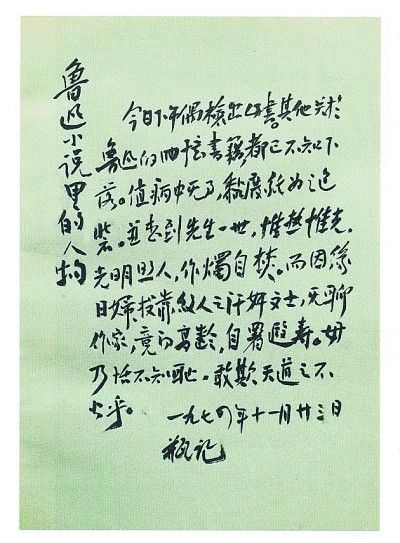 鲁迅小说里的人物
今日下午偶检出此書。其他关于
鲁迅的回忆書籍都已不知下
落。值病中无事，黏廢紙为之包
装。并想到先生一世，惟热惟光，
光明照人，作燭自焚。而因缘
日婦，投靠敌人之汗奸文士，无聊
作家，竟得高龄，自署遐寿。毋
乃恬不知耻，敢欺天道之不
公乎。 一九七四年十一月廿三日
瓶记